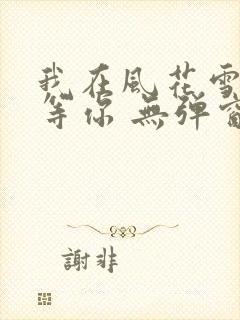 我在風花雪
等你 無彈窗
謝非